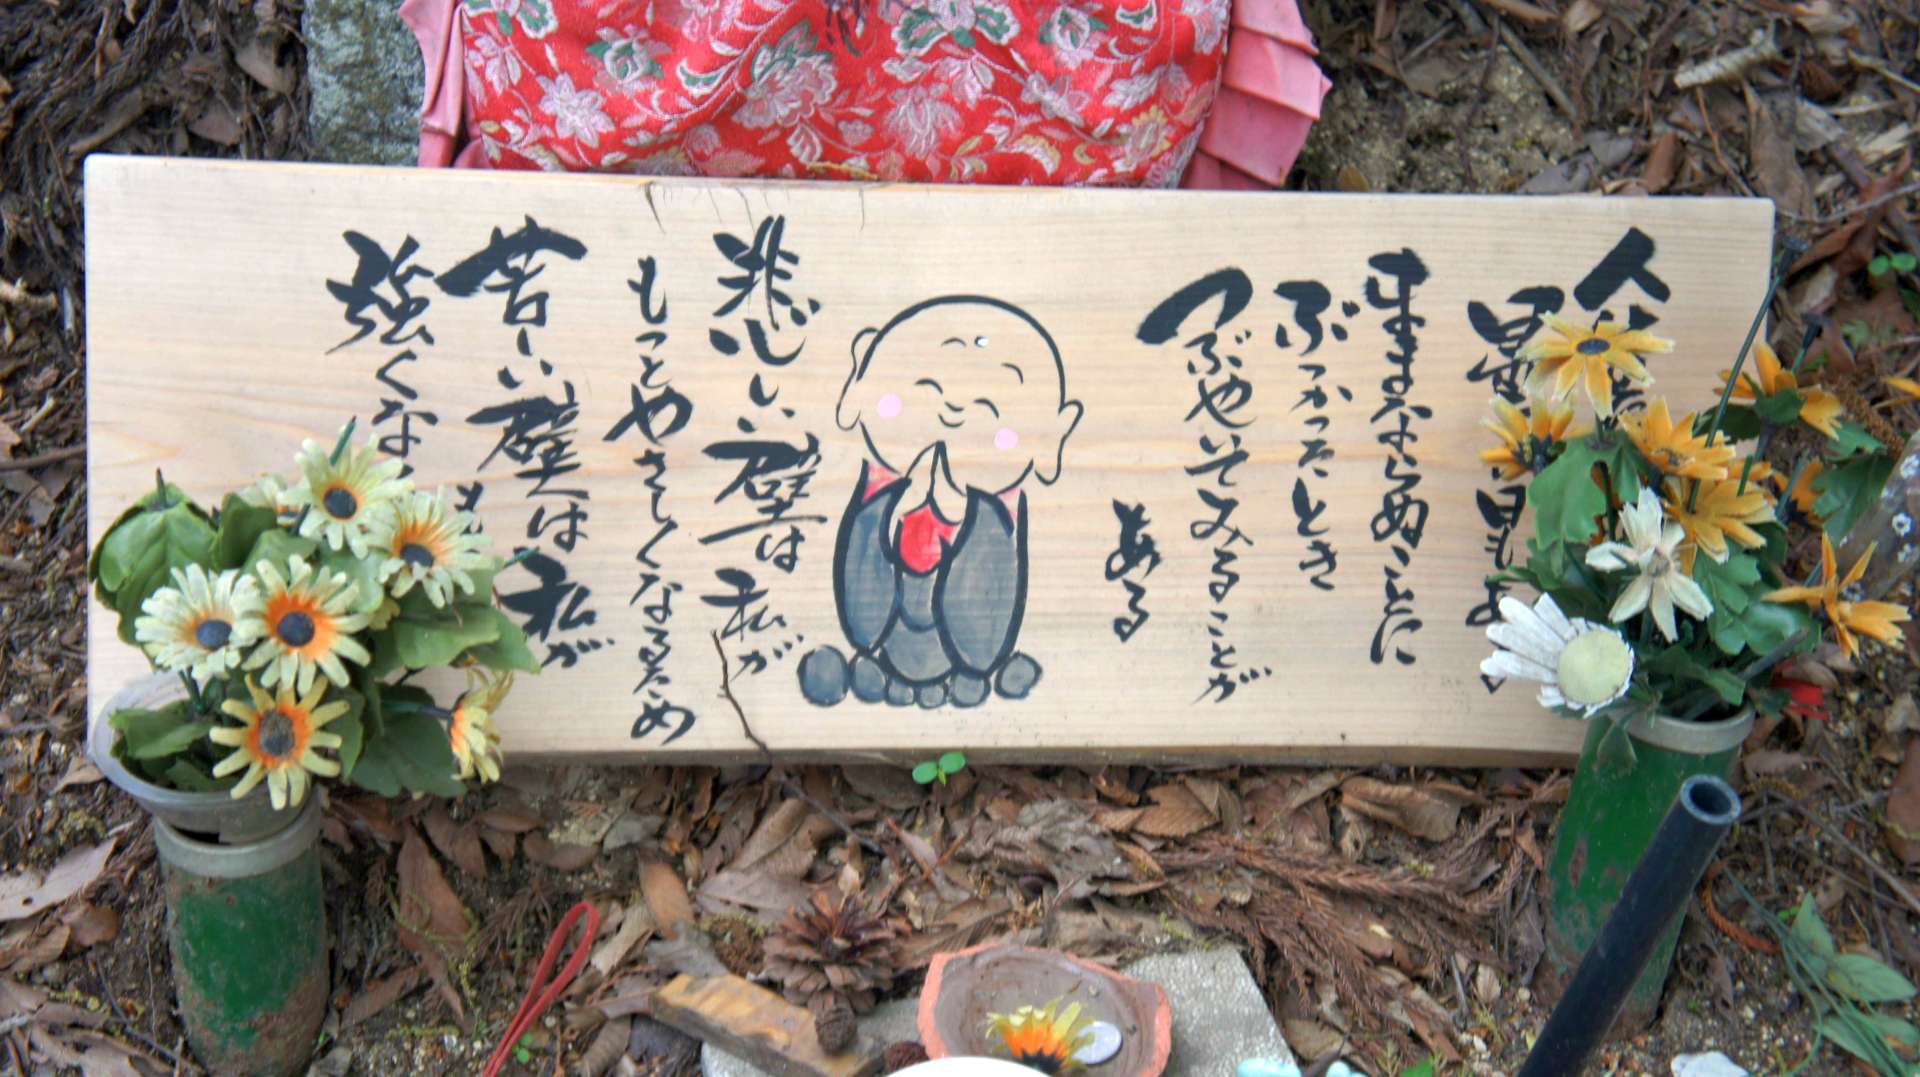 人
曇 日もあ
ままならぬことに
ぶつかったとき
つぶやいてみることが
ある
悲しい壁は私が
もっとやさしくなるため
苦しい壁は私が
強くな も